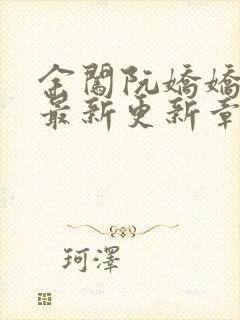 金閣阮嬌嬌
最新更新章
珂澤